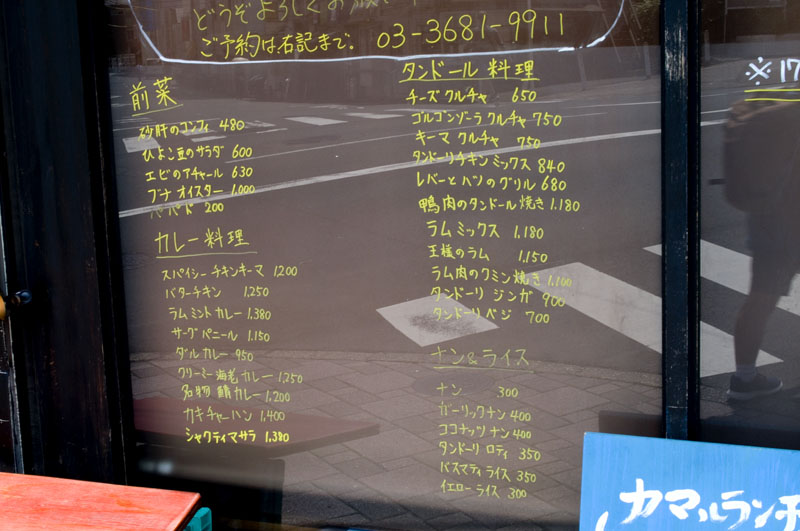 どうぞよろしくお願い
ご予約は右記まで。 03-3681-9911
前菜
砂肝のコンフィ 480
ひよこ豆のサラダ 600
エビのアチャール 630
ブナ オイスター 1.000
パパド 200
カレー料理
スパイシーチキンキーマ 1200
バターチキン 1,250
ラムミントカレー 1.380
サーグパニール 1.150
ダルカレー 950
クリーミー海老カレー 1,250
名物 鯖カレー 1,200
カキチャーハン 1,400
シャクティマサラ 1,380
タンドール料理
チーズクルチャ 650
ゴルゴンゾーラ クルチャ 750
キーマ クルチャ 750
タンドーリチキンミックス 840
レバーとハツのグリル 680
鴨肉のタンドール焼き 1.180
ラムミックス 1.180
王様のラム 1,150
ラム肉のクミン焼き 1,100
タンドーリ ジンガ 900
タンドーリベジ 700
ナン&ライス
ナン 300
ガーリックナン 400
ココナッツナン 400
タンドーリ ロティ 350
バスマティライス 350
イエローライス 300
※17
カマルラン